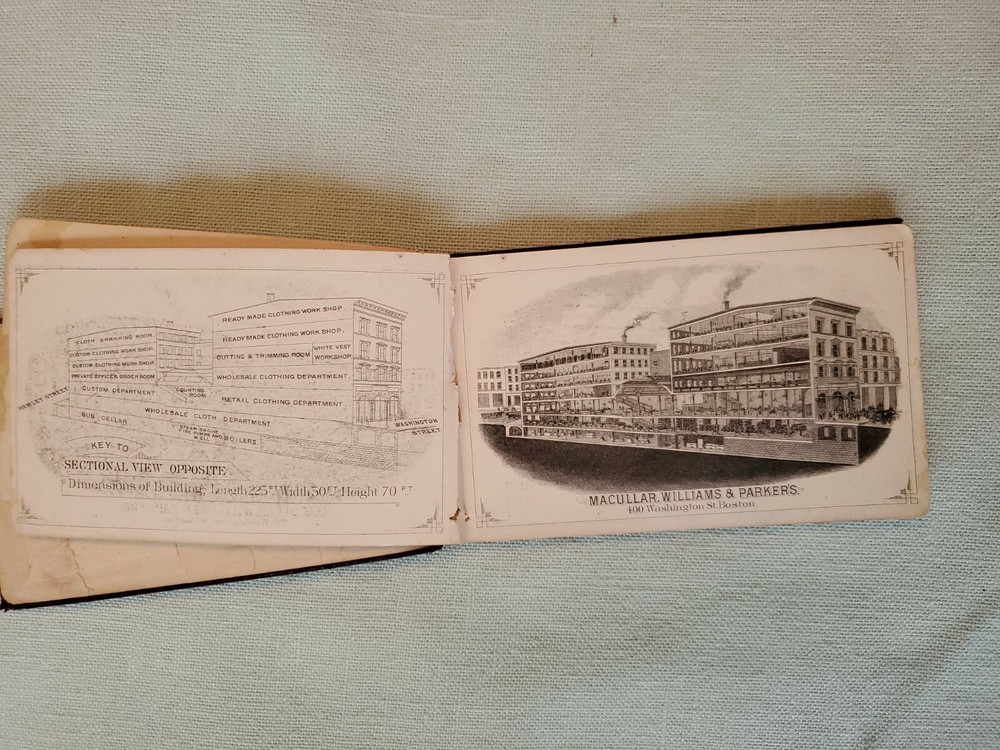 READY MADE CLOTHING WORK SHOP.
READY MADE CLOTHING WORK SHOP.
CUTTING & TRIMMING ROOM
WHITE VEST
WORKSHOP
WHOLESALE CLOTHING DEPARTMENT.
RETAIL CLOTHING DEPARTMENT.
CLOTH SHRINKING ROOM
CUSTOM CLOTHING WORK SHOP
CUSTOM CLOTHING WORK SHOP
PRIVATE OFFICE & ORDER ROOM
CUSTOM DEPARTMENT
COUNTING
ROOM
HAWLEY STREET
WHOLESALE CLOTH DEPARTMENT
SUB CELLAR
STEAM ENGINE
FIRE PUMPS AND
WELL
BOILERS
WASHINGTON
STREET
KEY TO
SECTIONAL VIEW OPPOSITE.
Dimensions of Building, Length 225 FT Width 50 FT Height 70 FT
MACULLAR, WILLIAMS & PARKER'S.
400 Washington St. Boston.